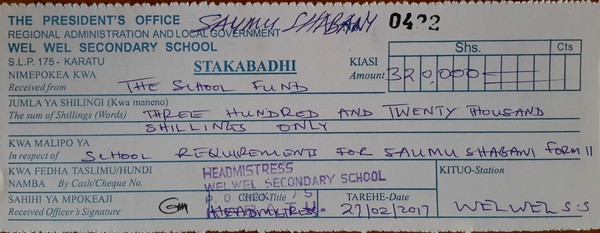 THE PRESIDENT'S OFFICE SAUMU SHABANI 0422
REGIONAL ADMINISTRATION AND LOCAL GOVERNMENT
WEL WEL SECONDARY SCHOOL
S.L.P. 175 - KARATU STAKABADHI KIASI Shs. Cts
NIMEPOKEA KWA Amount 320,000
Received from THE SCHOOL FUND
JUMLA YA SHILINGI (Kwa maneno)
The sum of Shillings (Words) THREE HUNDRED AND TWENTY THOUSAND
SHILLINGS ONLY
KWA MALIPO YA
In respect of SCHOOL REQUIREMENTS FOR SAUMU SHABANI FORM II
KWA FEDHA TASLIMU/HUNDI HEADMISTRESS KITUO-Station
NAMBA By Cash/Cheque No. WELWEL SECONDARY SCHOOL
SAHIHI YA MPOKEAJI CHEO-Title TAREHE-Date
Received Officer's Signature HEADMISTRESS 27/02/2017 WELWEL S.S